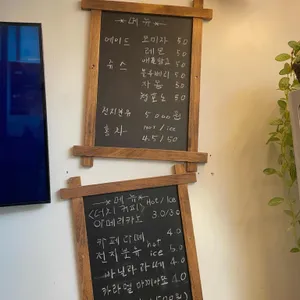 메뉴
에이드 오미자 5.0
레몬 5.0
쥬스 애플망고 5.0
블루베리 5.0
자몽 5.0
청포도 5.0
전지분유 5000원
홍차 hot / ice
4.5 / 5.0
메뉴
<더치 커피> Hot / Ice
아메리카노 3.0/3.0
카페라떼 4.0
전지분유 hot
ice 5.0
바닐라 라떼 4.0
카라멜 마끼아또 4.0